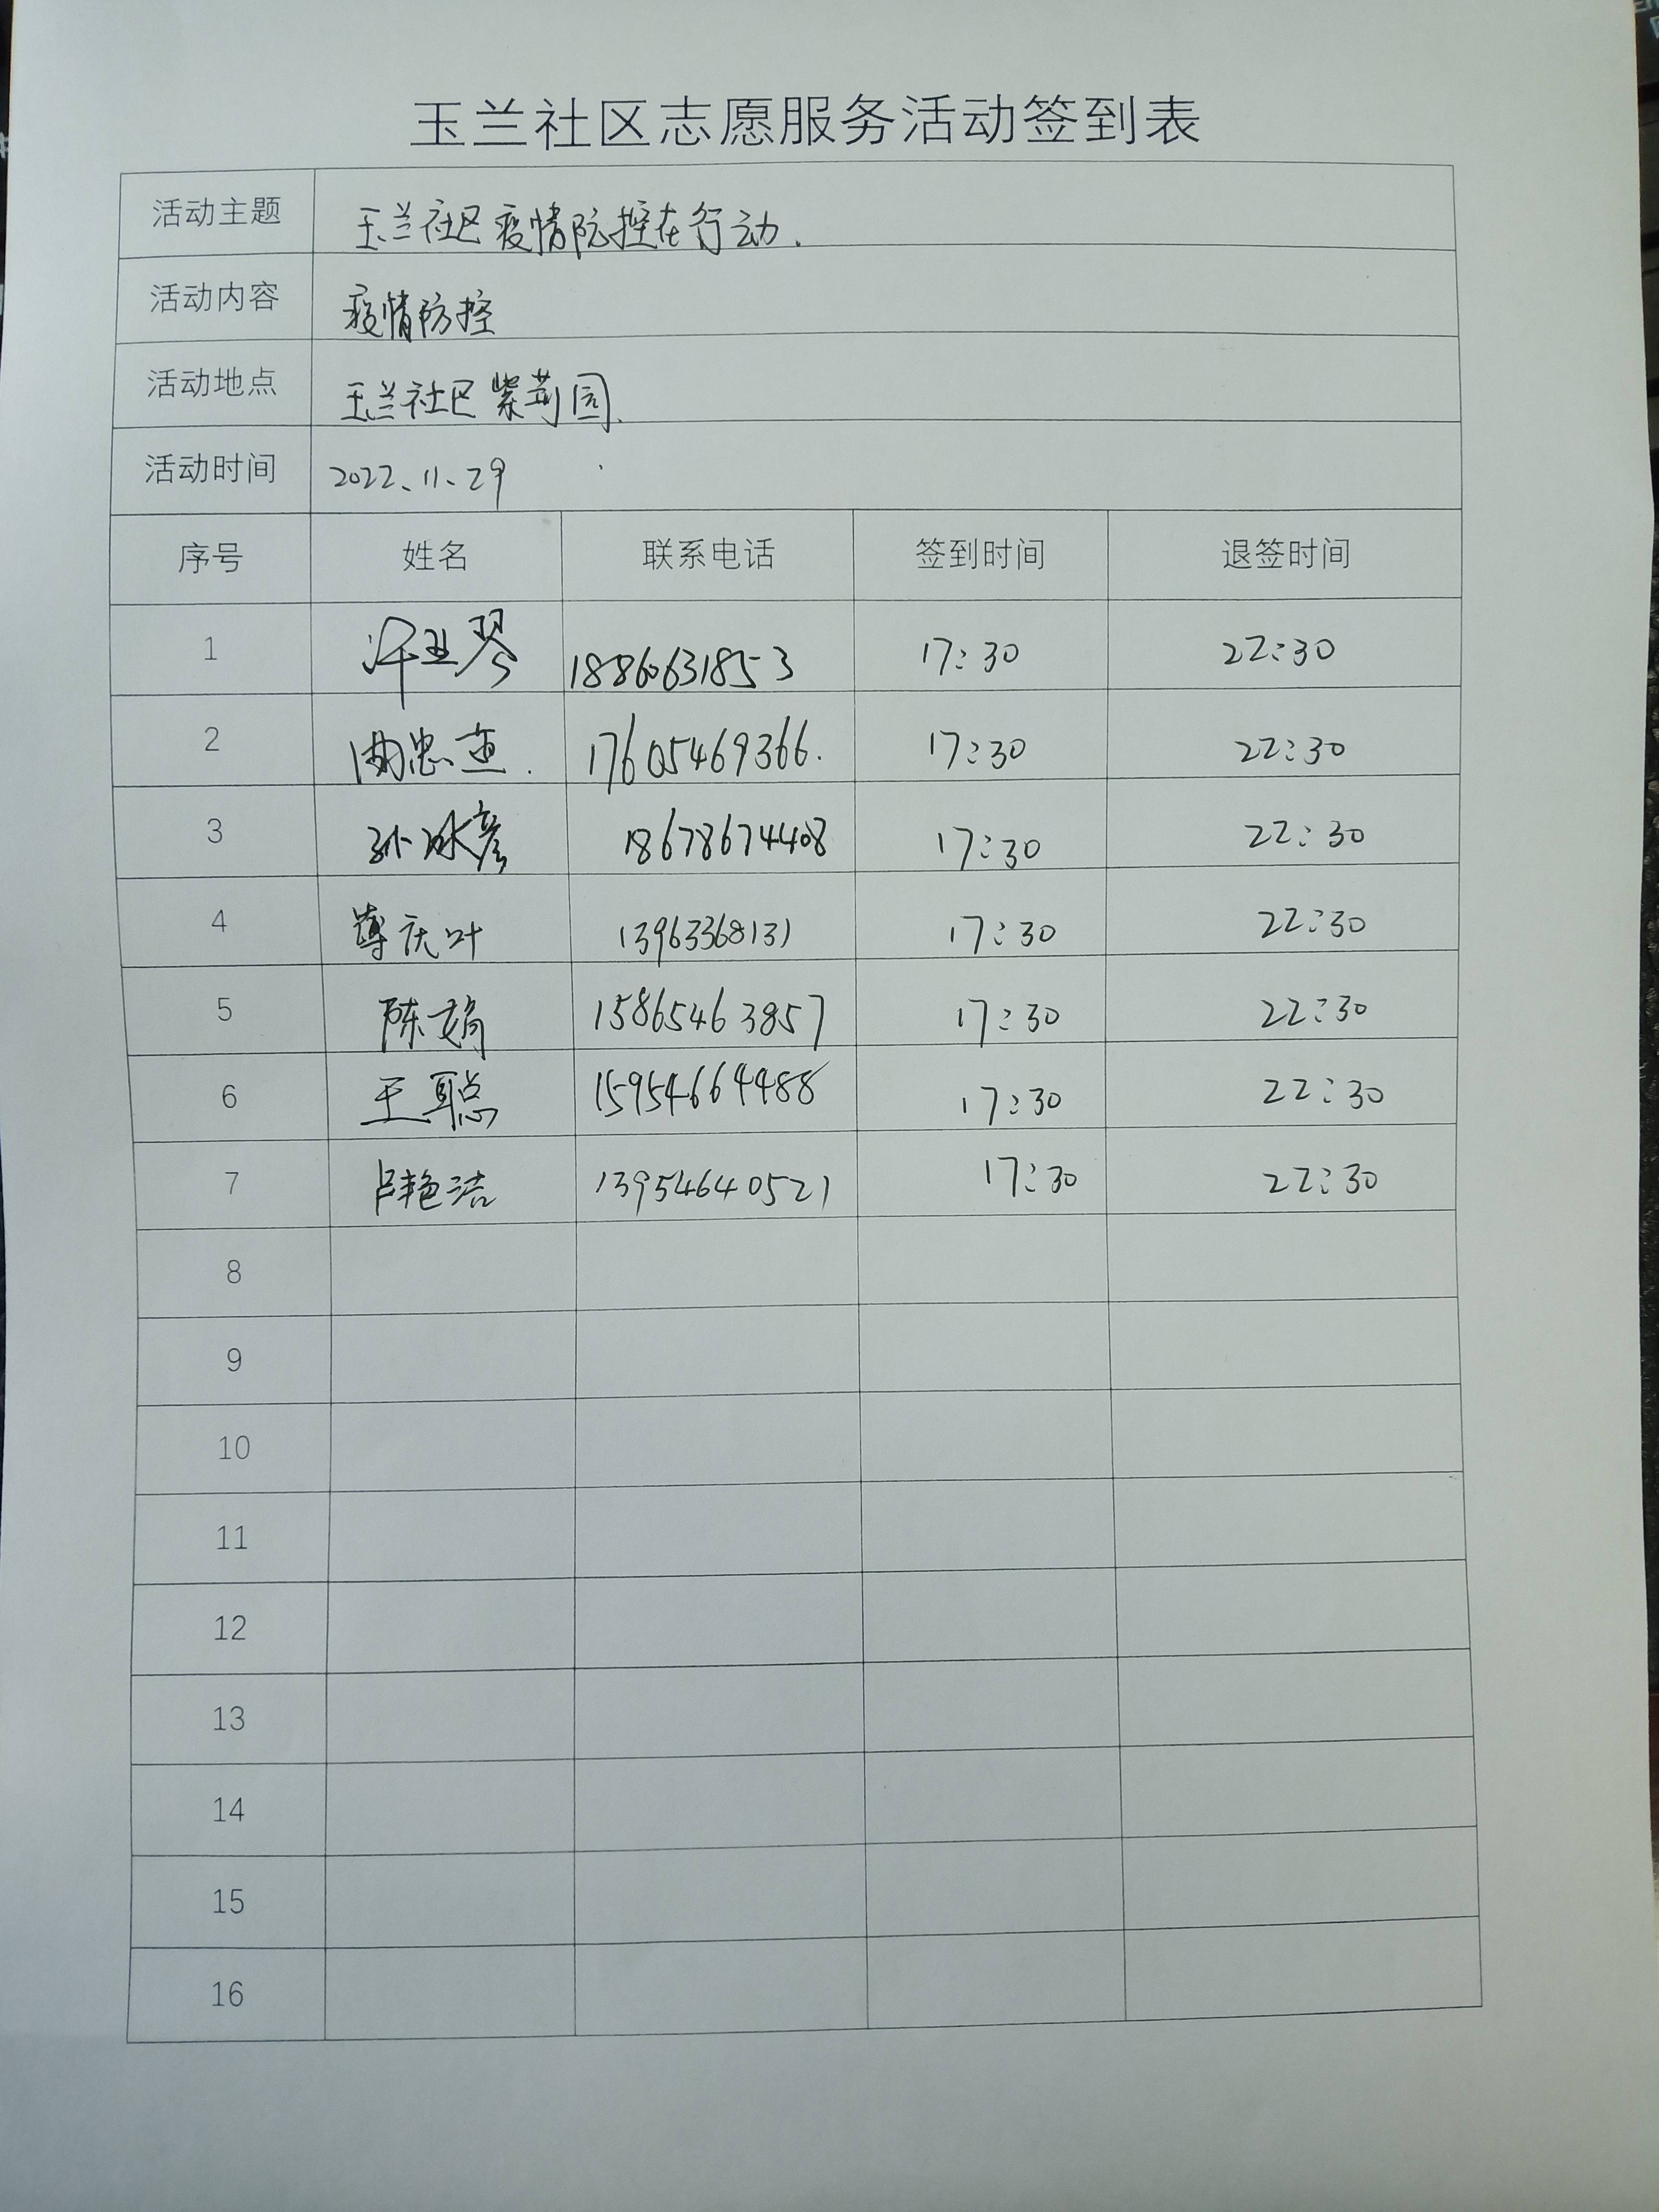 玉兰社区志愿服务活动签到表
活动主题 玉兰社区疫情防控在行动.
活动内容 疫情防控
活动地点 玉兰社区紫荆园.
活动时间 2022、11、29
序号 姓名 联系电话 签到时间 退签时间
1 18860631853 17:30 22:30
2 17605469366. 17:30 22:30
3 孙冰彦 18678674408 17:30 22:30
4 薄庆叶 13963368131 17:30 22:30
5 陈娟 15865463857 17:30 22:30
6 王聪 15954664488 17:30 22:30
7 卢艳洁 13954640521 17:30 22:30
8
9
10
11
12
13
14
15
16